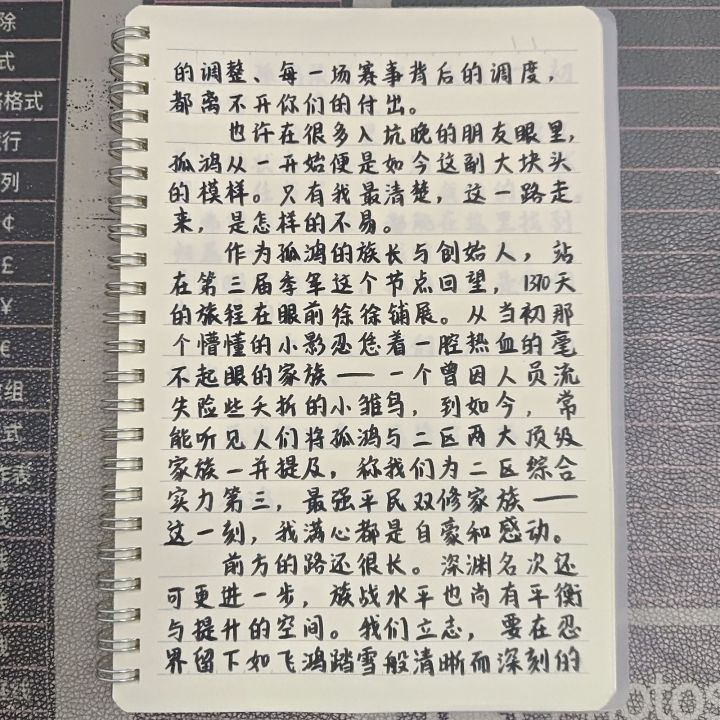 的调整、每一场赛事背后的调度，
都离不开你们的付出。
也许在很多入坑晚的朋友眼里，
孤鸿从一开始便是如今这副大块头
的模样。只有我最清楚，这一路走
来，是怎样的不易。
作为孤鸿的族长与创始人，站
在第三届季军这个节点回望，1370天
的旅程在眼前徐徐铺展。从当初那
个懵懂的小影忍凭着一腔热血的毫
不起眼的家族——一个曾因人员流
失险些夭折的小雏鸟，到如今，常
能听见人们将孤鸿与二区两大顶级
家族一并提及，称我们为二区综合
实力第三，最强平民双修家族——
这一刻，我满心都是自豪和感动。
前方的路还很长。深渊名次还
可更进一步，族战水平也尚有平衡
与提升的空间。我们立志，要在忍
界留下如飞鸿踏雪般清晰而深刻的
除
式
格式
行
列
¢
£
¥
€
数组
式
作表
otos